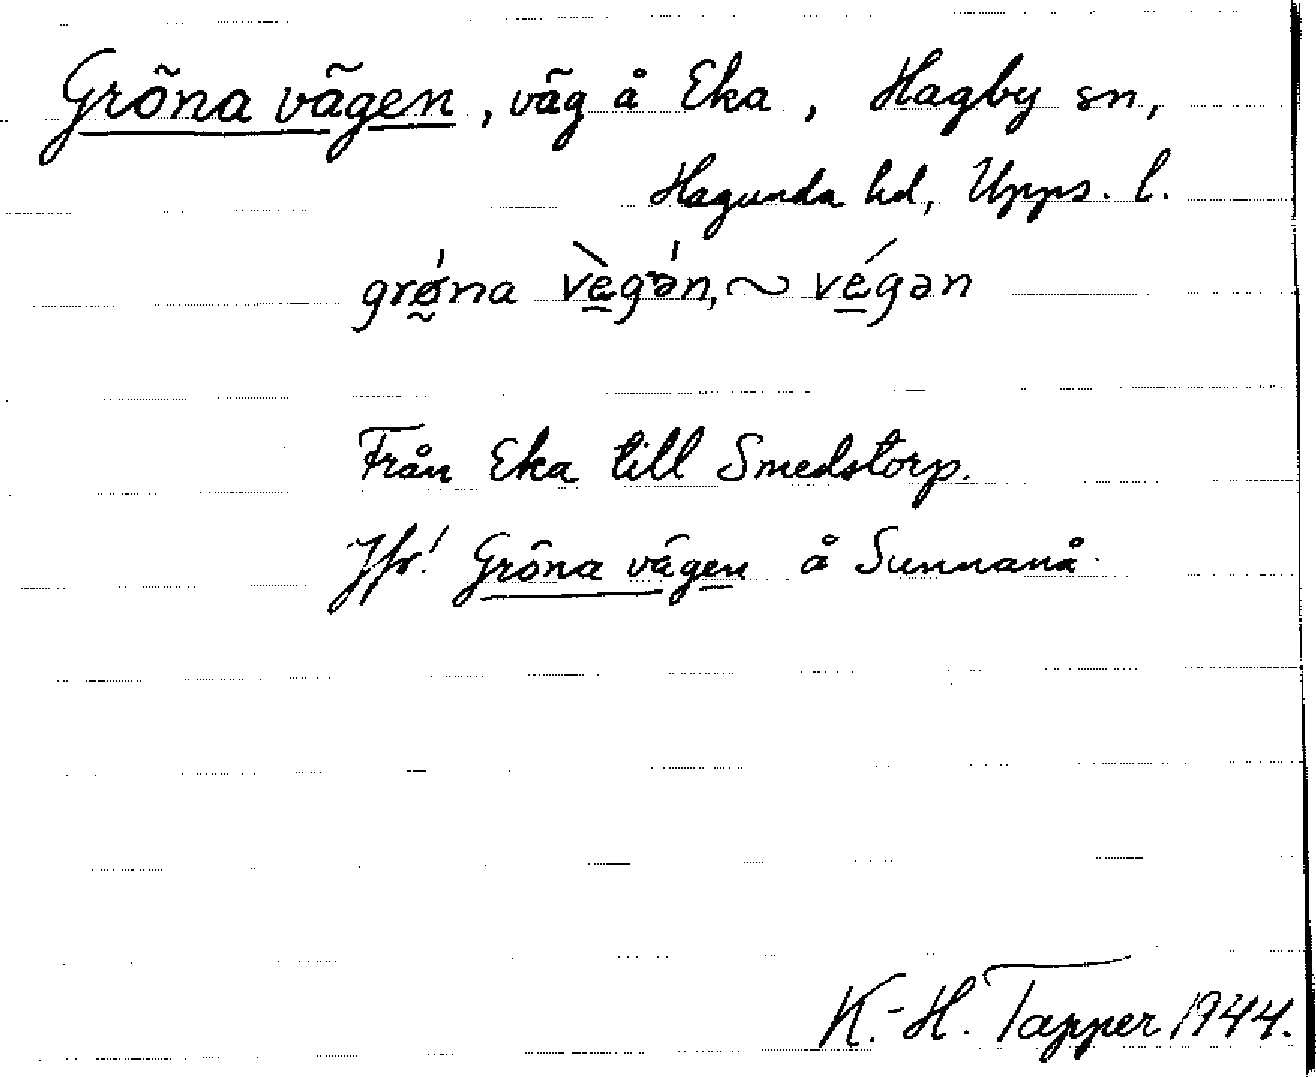 Gröna vägen, väg å Eka, Hagby sn,
Hagunda hd, Upps. l.
grǿ̰na vè̱gə́n, ~ vé̱gən
Från Eka till Smedstorp.
Jfr! Gröna vägen å Sunnanå.
K.-H. Tapper 1944.